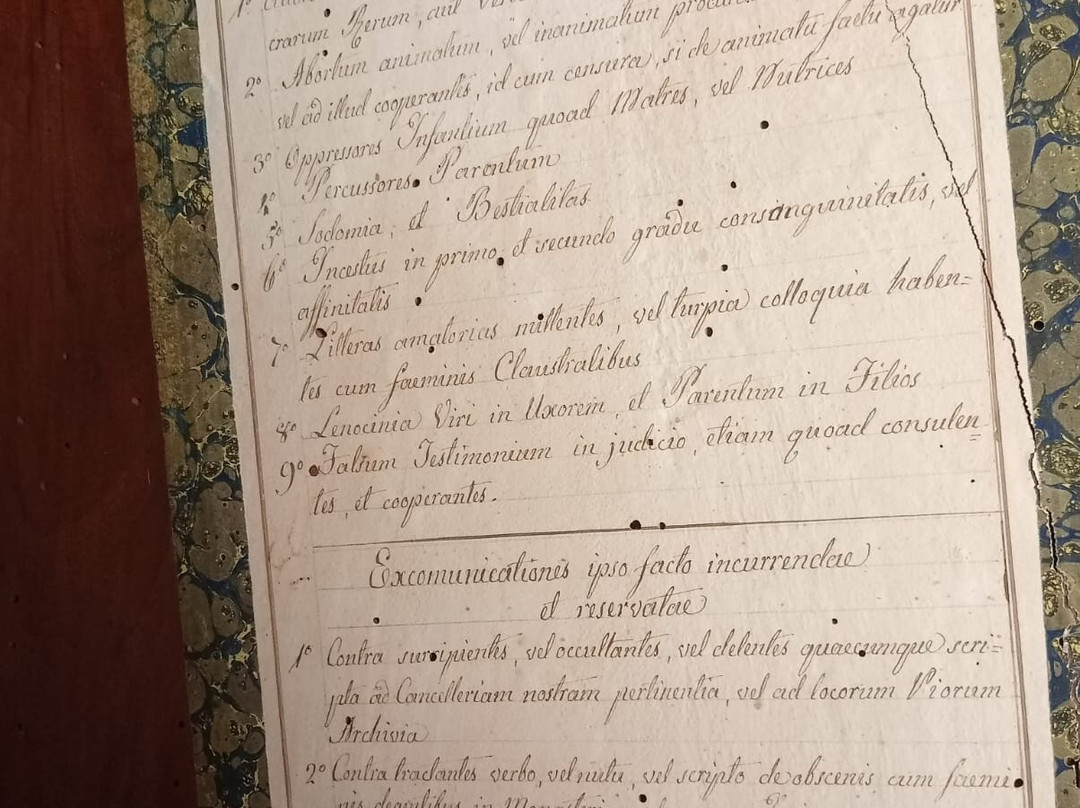 crarum Rerum, aut
2º Abortum animatum, vel inanimatum
vel ad illud cooperantes, id cum censura, si de animatu faetu agatur
3º Oppressores Infantium quoad Matres, vel Nutrices
4º Percussores Parentum
5º Sodomia, et Bestialitas
6º Incestus in primo et secundo gradu consanguinitatis, vel
affinitatis
7º Litteras amatorias mittentes, vel turpia colloquia haben=
tes cum faeminis Claustralibus
8º Lenocinia Viri in Uxorem, et Parentum in Filios
9º Falsum Testimonium in judicio, etiam quoad consulen=
tes, et cooperantes.
Excomunicationes ipso facto incurrendae
et reservatae
1º Contra surripientes, vel occultantes, vel delentes quaecumque scri=
pta ad Cancelleriam nostram pertinentia, vel ad locorum Piorum
Archivia
2º Contra tractantes verbo, vel nutu, vel scripto de obscenis cum faemi
nis degentibus in